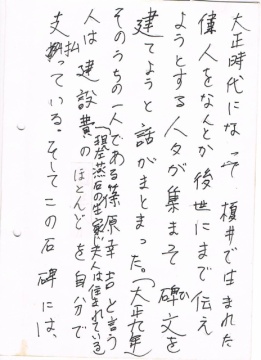 大正時代になって 榎井で生まれた
偉人をなんとか後世にまで伝え
ようとする人々が集まって碑文を
建てようと話がまとまった。(大正九年)
そのうちの一人である篠原幸吉と言う
(現在 燕石の生家に夫人は住まれている)
人は 建設費のほとんどを自分で
支払っている。そしてこの石碑には、